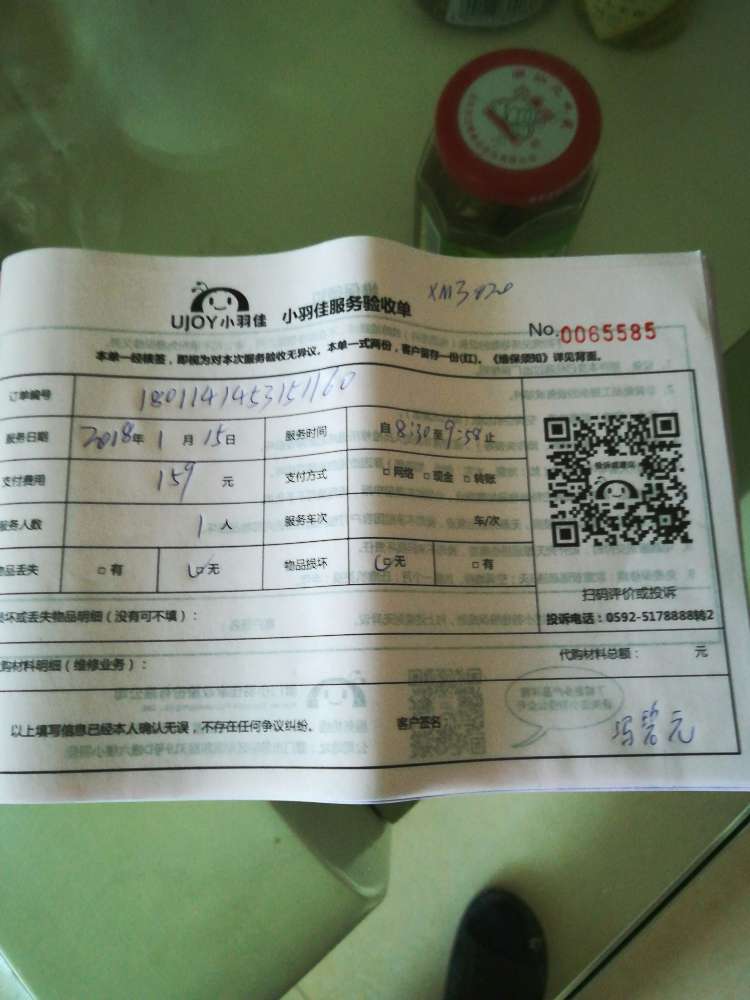 XM3020
UJOY小羽佳 小羽佳服务验收单
No.0065585
本单一经核签,即视为对本次服务验收无异议。本单一式两份,客户留存一份(红)。《维保须知》详见背面。
订单编号 1801141453151160
服务日期 2018年 1月 15日 服务时间 自8:30至9:58止
支付费用 159 元 支付方式 □网络 □现金 □转账
服务人数 1人 服务车次 车/次
物品丢失 □有 □无 物品损坏 □无 □有
扫码评价或投诉
损坏或丢失物品明细(没有可不填): 投诉电话:0592-5178888转2
代购材料明细(维修业务): 代购材料总额: 元
以上填写信息已经本人确认无误,不存在任何争议纠纷。 客户签名 冯碧元